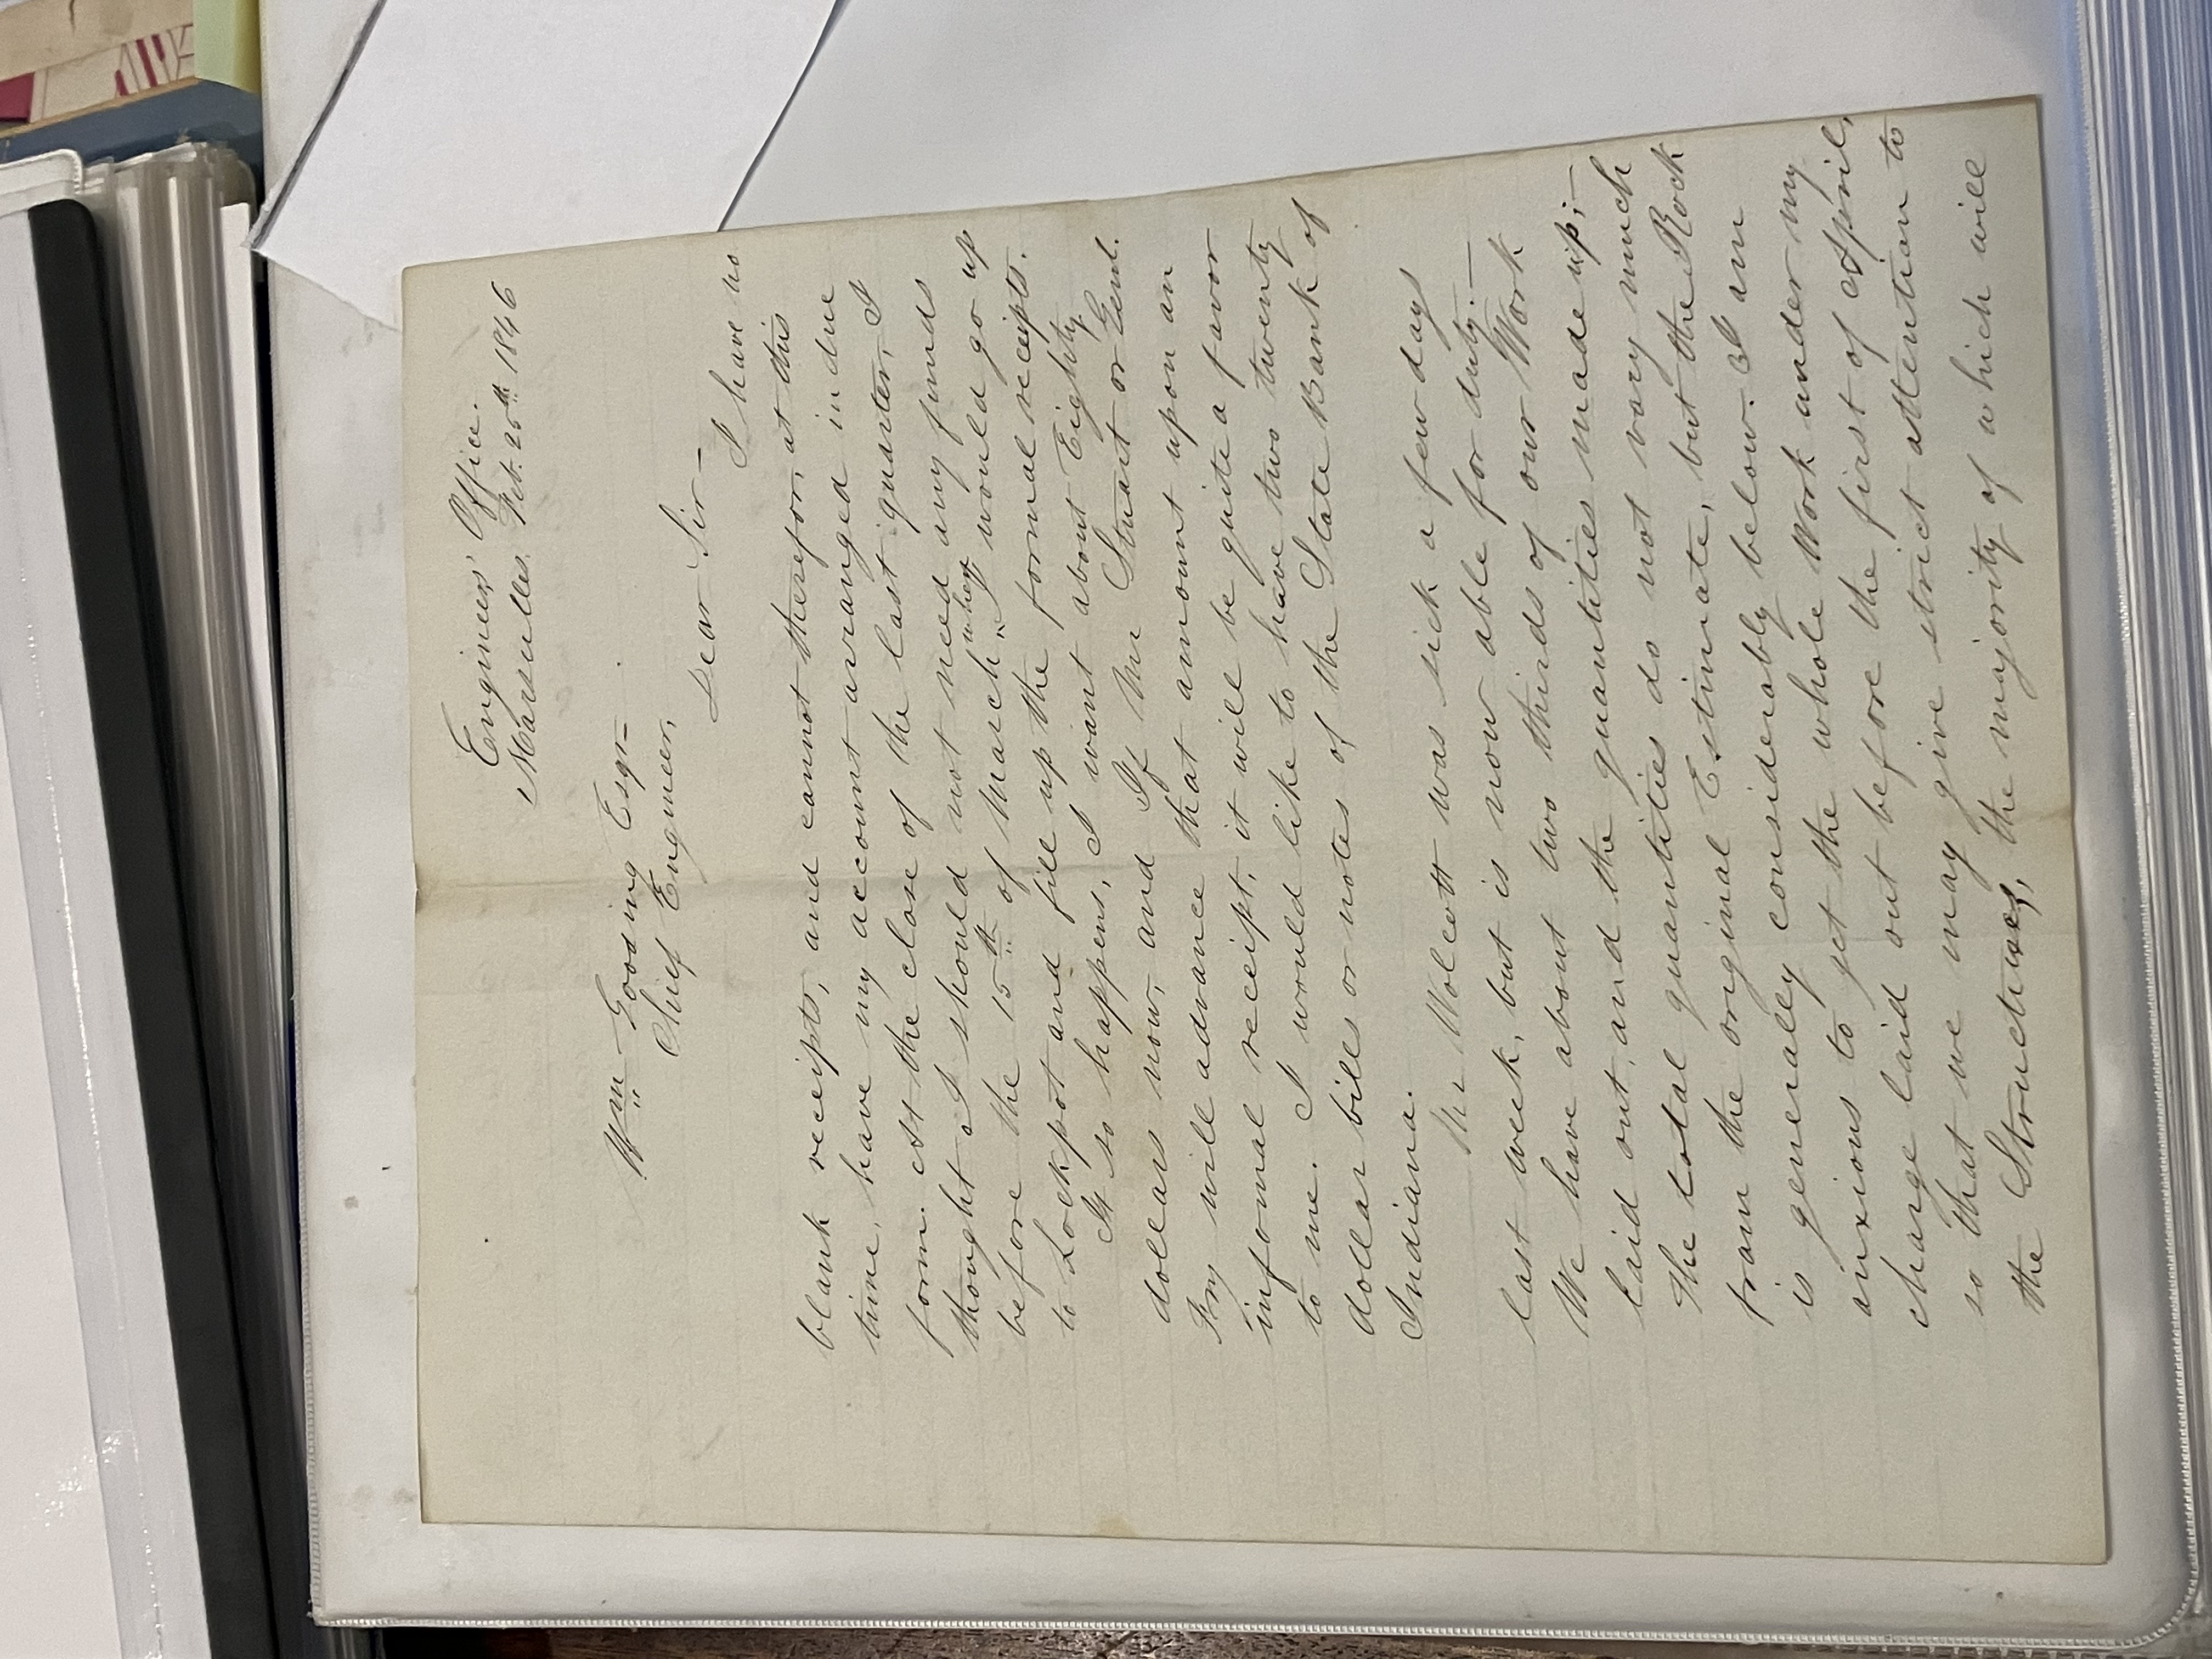 Engineers' Office.
Marseilles. Feb. 25th 1846
Wm Gooding Esqr—
Chief Engineer,
Dear Sir—
I have no
blank receipts, and cannot therefor, at this
time, have my account arranged in due
form. At the close of the last quarter, I
thought I should not need any funds
before the 15th of March, when I would go up
to Lockport and fill up the formal receipts.
It so happens, I want about Eighty
dollars now, and If Mr Stuart or Genl.
Fry will advance that amount upon an
informal receipt, it will be quite a favor
to me. I would like to have two twenty
dollar bills or notes of the State Bank of
Indiana.
Mr Wolcott was sick a few days
last week, but is now able for duty.—
We have about two thirds of our Work
laid out, and the quantities made up;—
The total quantities do not vary much
from the original Estimate, but the Rock
is generally considerably below. I am
anxious to get the whole Work under my
charge laid out before the first of April,
so that we may give strict attention to
the Structures, the majority of which will